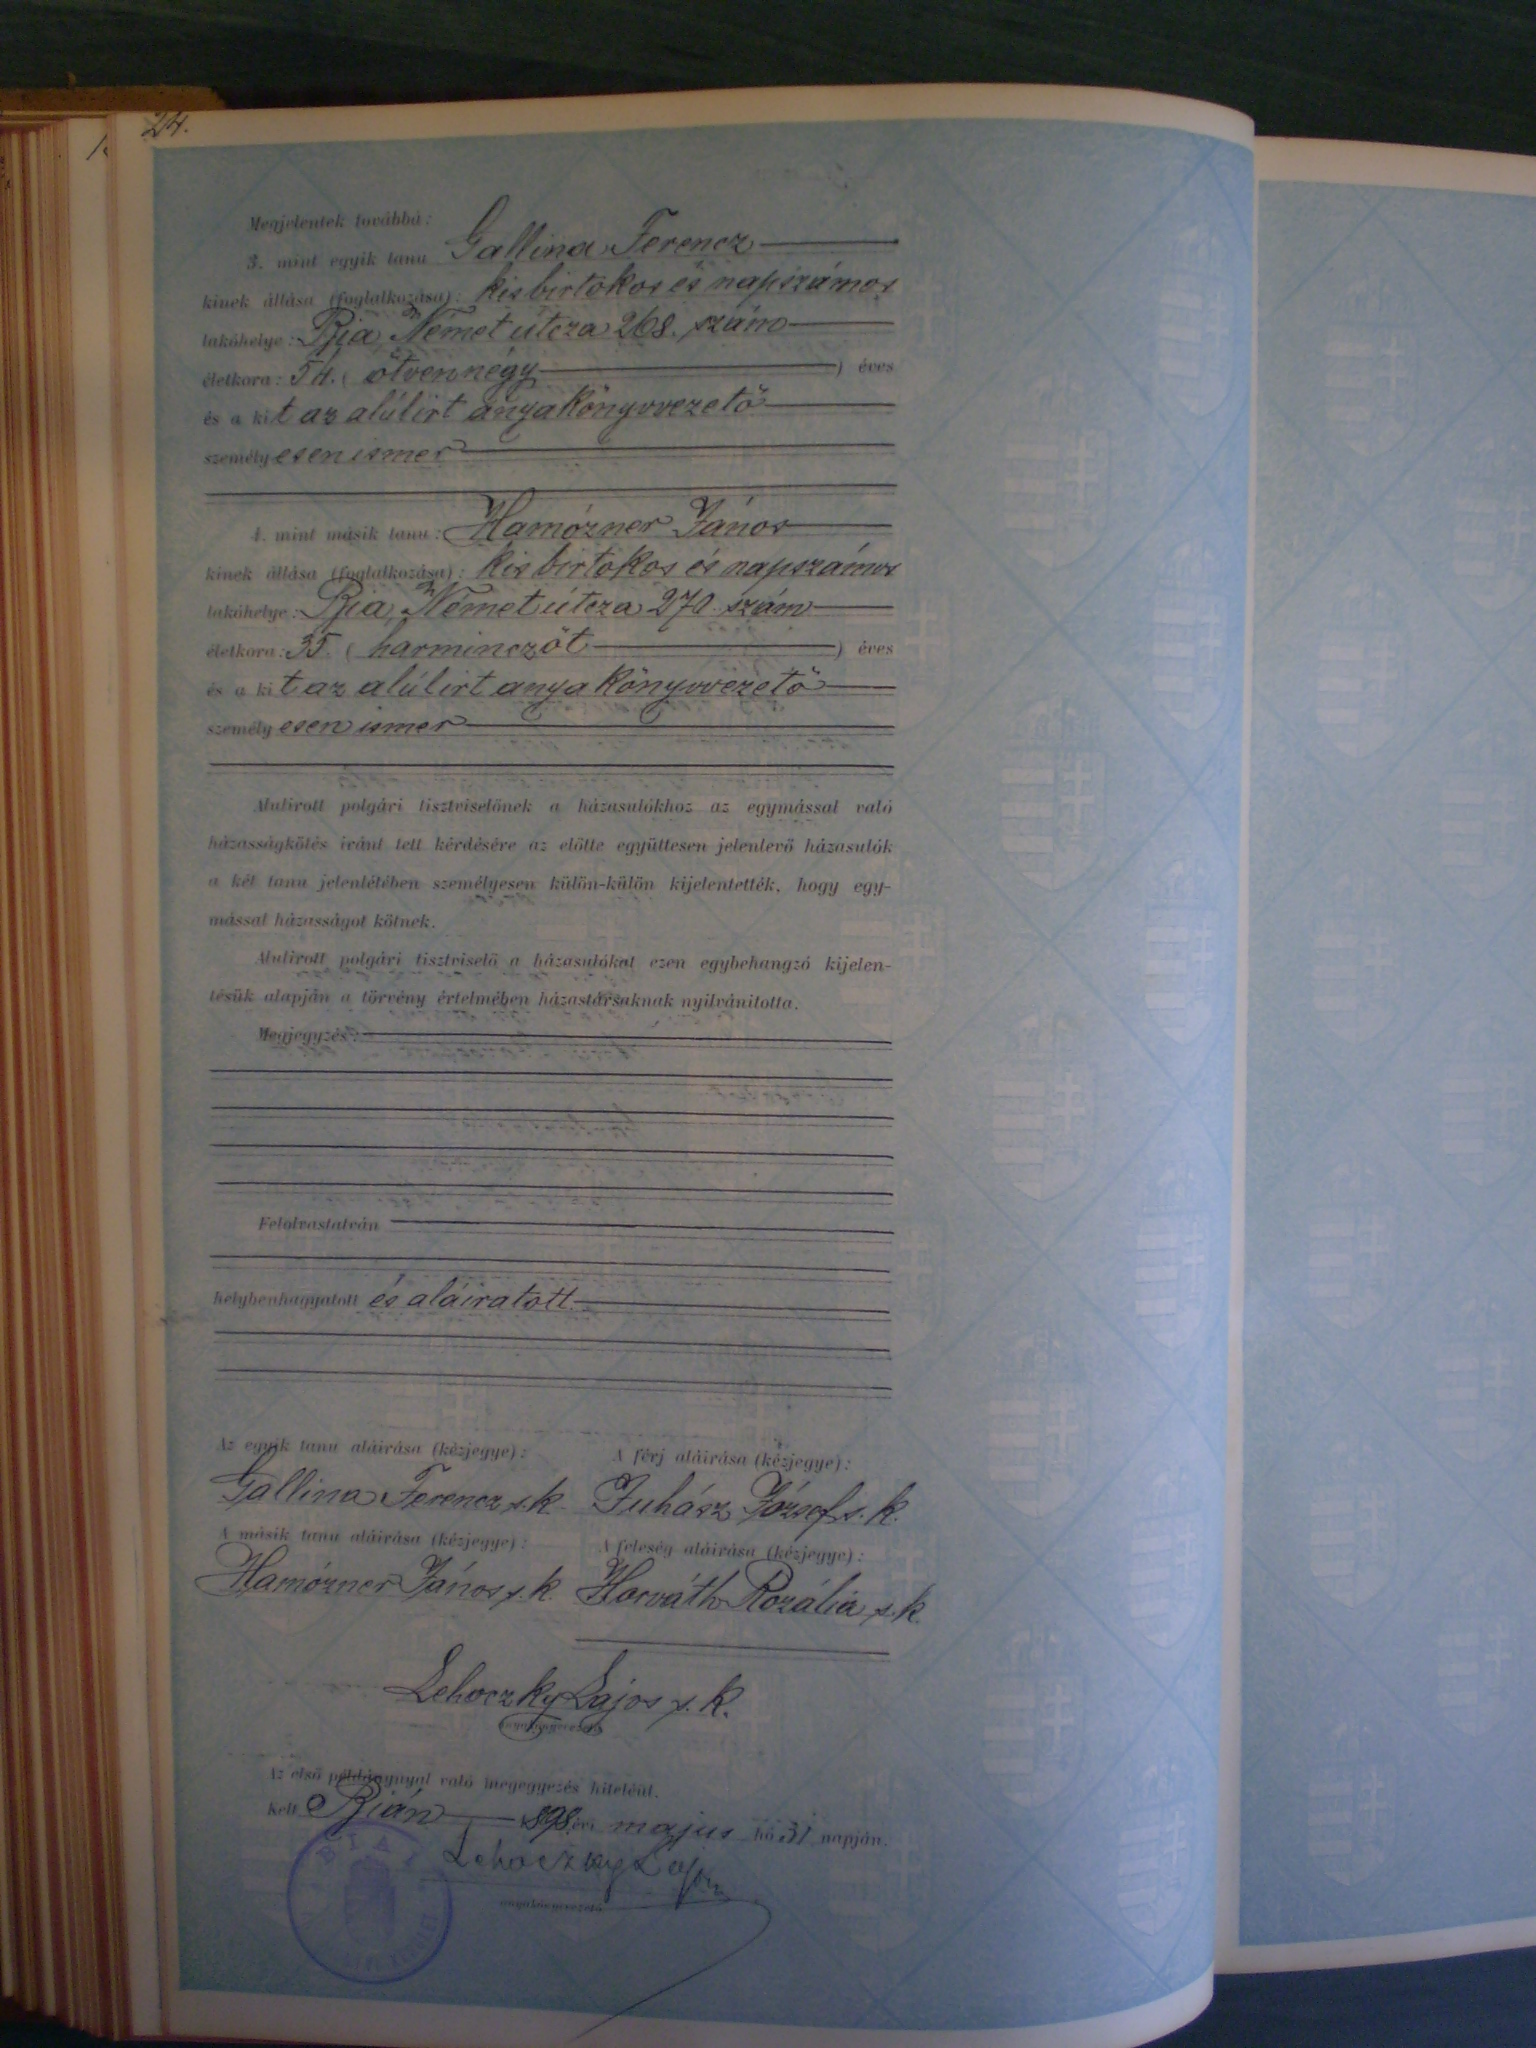 24.
Megjelentek továbbá:
3. mint egyik tanu Gallina Ferencz
kinek állása (foglalkozása): kisbirtokos és napszámos
lakóhelye: Bia, Német útcza 268. szám
életkora: 54. (ötvennégy) éves
és a kit az alúlirt anyakönyvvezető
személyesen ismer
4. mint másik tanu: Hamózner János
kinek állása (foglalkozása): kis birtokos és napszámos
lakóhelye: Bia, Német útcza 270. szám
életkora: 35. (harminczöt) éves
és a kit az alúlirt anyakönyvvezető
személyesen ismer
Alulirott polgári tisztviselőnek a házasulókhoz az egymással való
házasságkötés iránt tett kérdésére az előtte együttesen jelenlevő házasulók
a két tanu jelenlétében személyesen külön-külön kijelentették, hogy egy-
mással házasságot kötnek.
Alulirott polgári tisztviselő a házasulókat ezen egybehangzó kijelen-
tésük alapján a törvény értelmében házastársaknak nyilvánitotta.
Megjegyzés:
Felolvastatván
helybenhagyatott és aláiratott.
Az egyik tanu aláirása (kézjegye): A férj aláirása (kézjegye):
Gallina Ferencz s. k. Juhász József s. k.
A másik tanu aláirása (kézjegye): A feleség aláirása (kézjegye):
Hamózner János s. k. Horváth Rozália s. k.
Lehoczky Lajos s. k.
anyakönyvvezető
Az első példánynyal való megegyezés hiteléül.
Kelt Bián 1898. évi majus hó 31 napján.
Lehoczky Lajos
anyakönyvvezető
BIAI